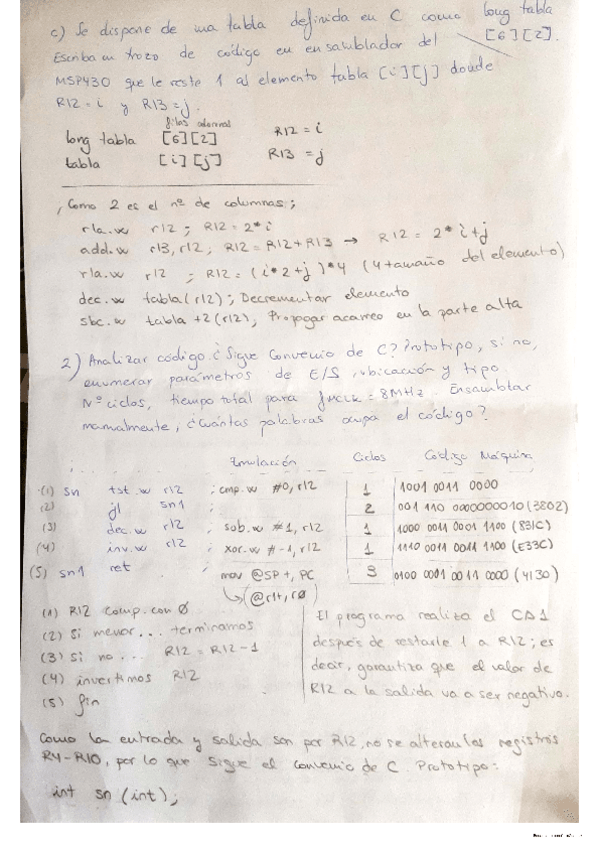 c) Se dispone de una tabla definida en C como long tabla
[6][2].
Escriba un trozo de código en ensamblador del
MSP430 que le reste 1 al elemento tabla [i][j] donde
R12 = i y R13 = j.
filas
long tabla [6][2] R12 = i
tabla [i][j] R13 = j
; Como 2 es el nº de columnas;
rla.w r12 ; R12 = 2*i
add.w r13, r12 ; R12 = R12 + R13 → R12 = 2*i+j
rla.w r12 ; R12 = (i*2+j)*4 (4 tamaño del elemento)
dec.w tabla(r12) ; Decrementar elemento
sbc.w tabla +2(r12); Propagar acarreo en la parte alta
2) Analizar código. ¿Sigue Convenio de C? Prototipo, si no,
enumerar parámetros de E/S, ubicación y tipo.
Nº ciclos, tiempo total para fMCLK = 8MHz. Ensamblar
manualmente, ¿Cuántas palabras ocupa el código?
Emulación Ciclos Código Máquina
(1) sn tst.w r12 ; cmp.w #0, r12 1 1001 0011 0000
(2) jl sn1 ; 2 001 110 0000000010 (3802)
(3) dec.w r12 ; sub.w #1, r12 1 1000 0011 0001 1100 (831C)
(4) inv.w r12 ; xor.w #-1, r12 1 1110 0011 0011 1100 (E33C)
(5) sn1 ret ; mov @SP+, PC 3 0100 0001 0011 0000 (4130)
(@r1+, r0)
(1) R12 comp. con 0
(2) Si menor... terminamos
(3) Si no... R12 = R12 - 1
(4) invertimos R12
(5) fin
El programa realiza el CA1
después de restarle 1 a R12; es
decir, garantiza que el valor de
R12 a la salida va a ser negativo.
Como la entrada y salida son por R12, no se alteran los registros
R4-R10, por lo que sigue el convenio de C. Prototipo:
int sn (int);